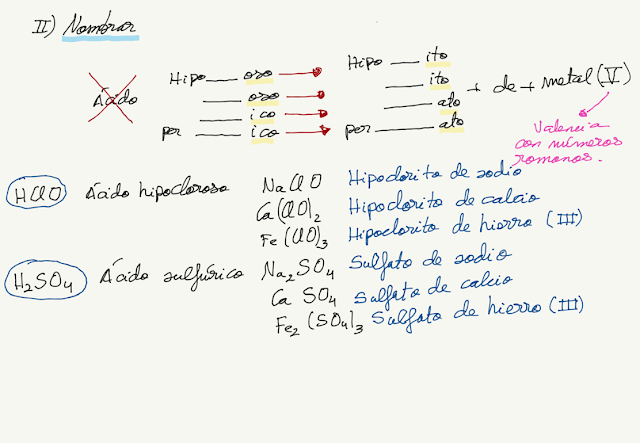 II) Nombrar
Ácido
Hipo ___ oso → Hipo ___ ito
___ oso → ___ ito
___ ico → ___ ato
per ___ ico → per ___ ato
+ de + metal (V)
Valencia
con números
romanos.
HClO Ácido hipocloroso NaClO Hipoclorito de sodio
Ca(ClO)2 Hipoclorito de calcio
Fe(ClO)3 Hipoclorito de hierro (III)
H2SO4 Ácido sulfúrico Na2SO4 Sulfato de sodio
Ca SO4 Sulfato de calcio
Fe2 (SO4)3 Sulfato de hierro (III)